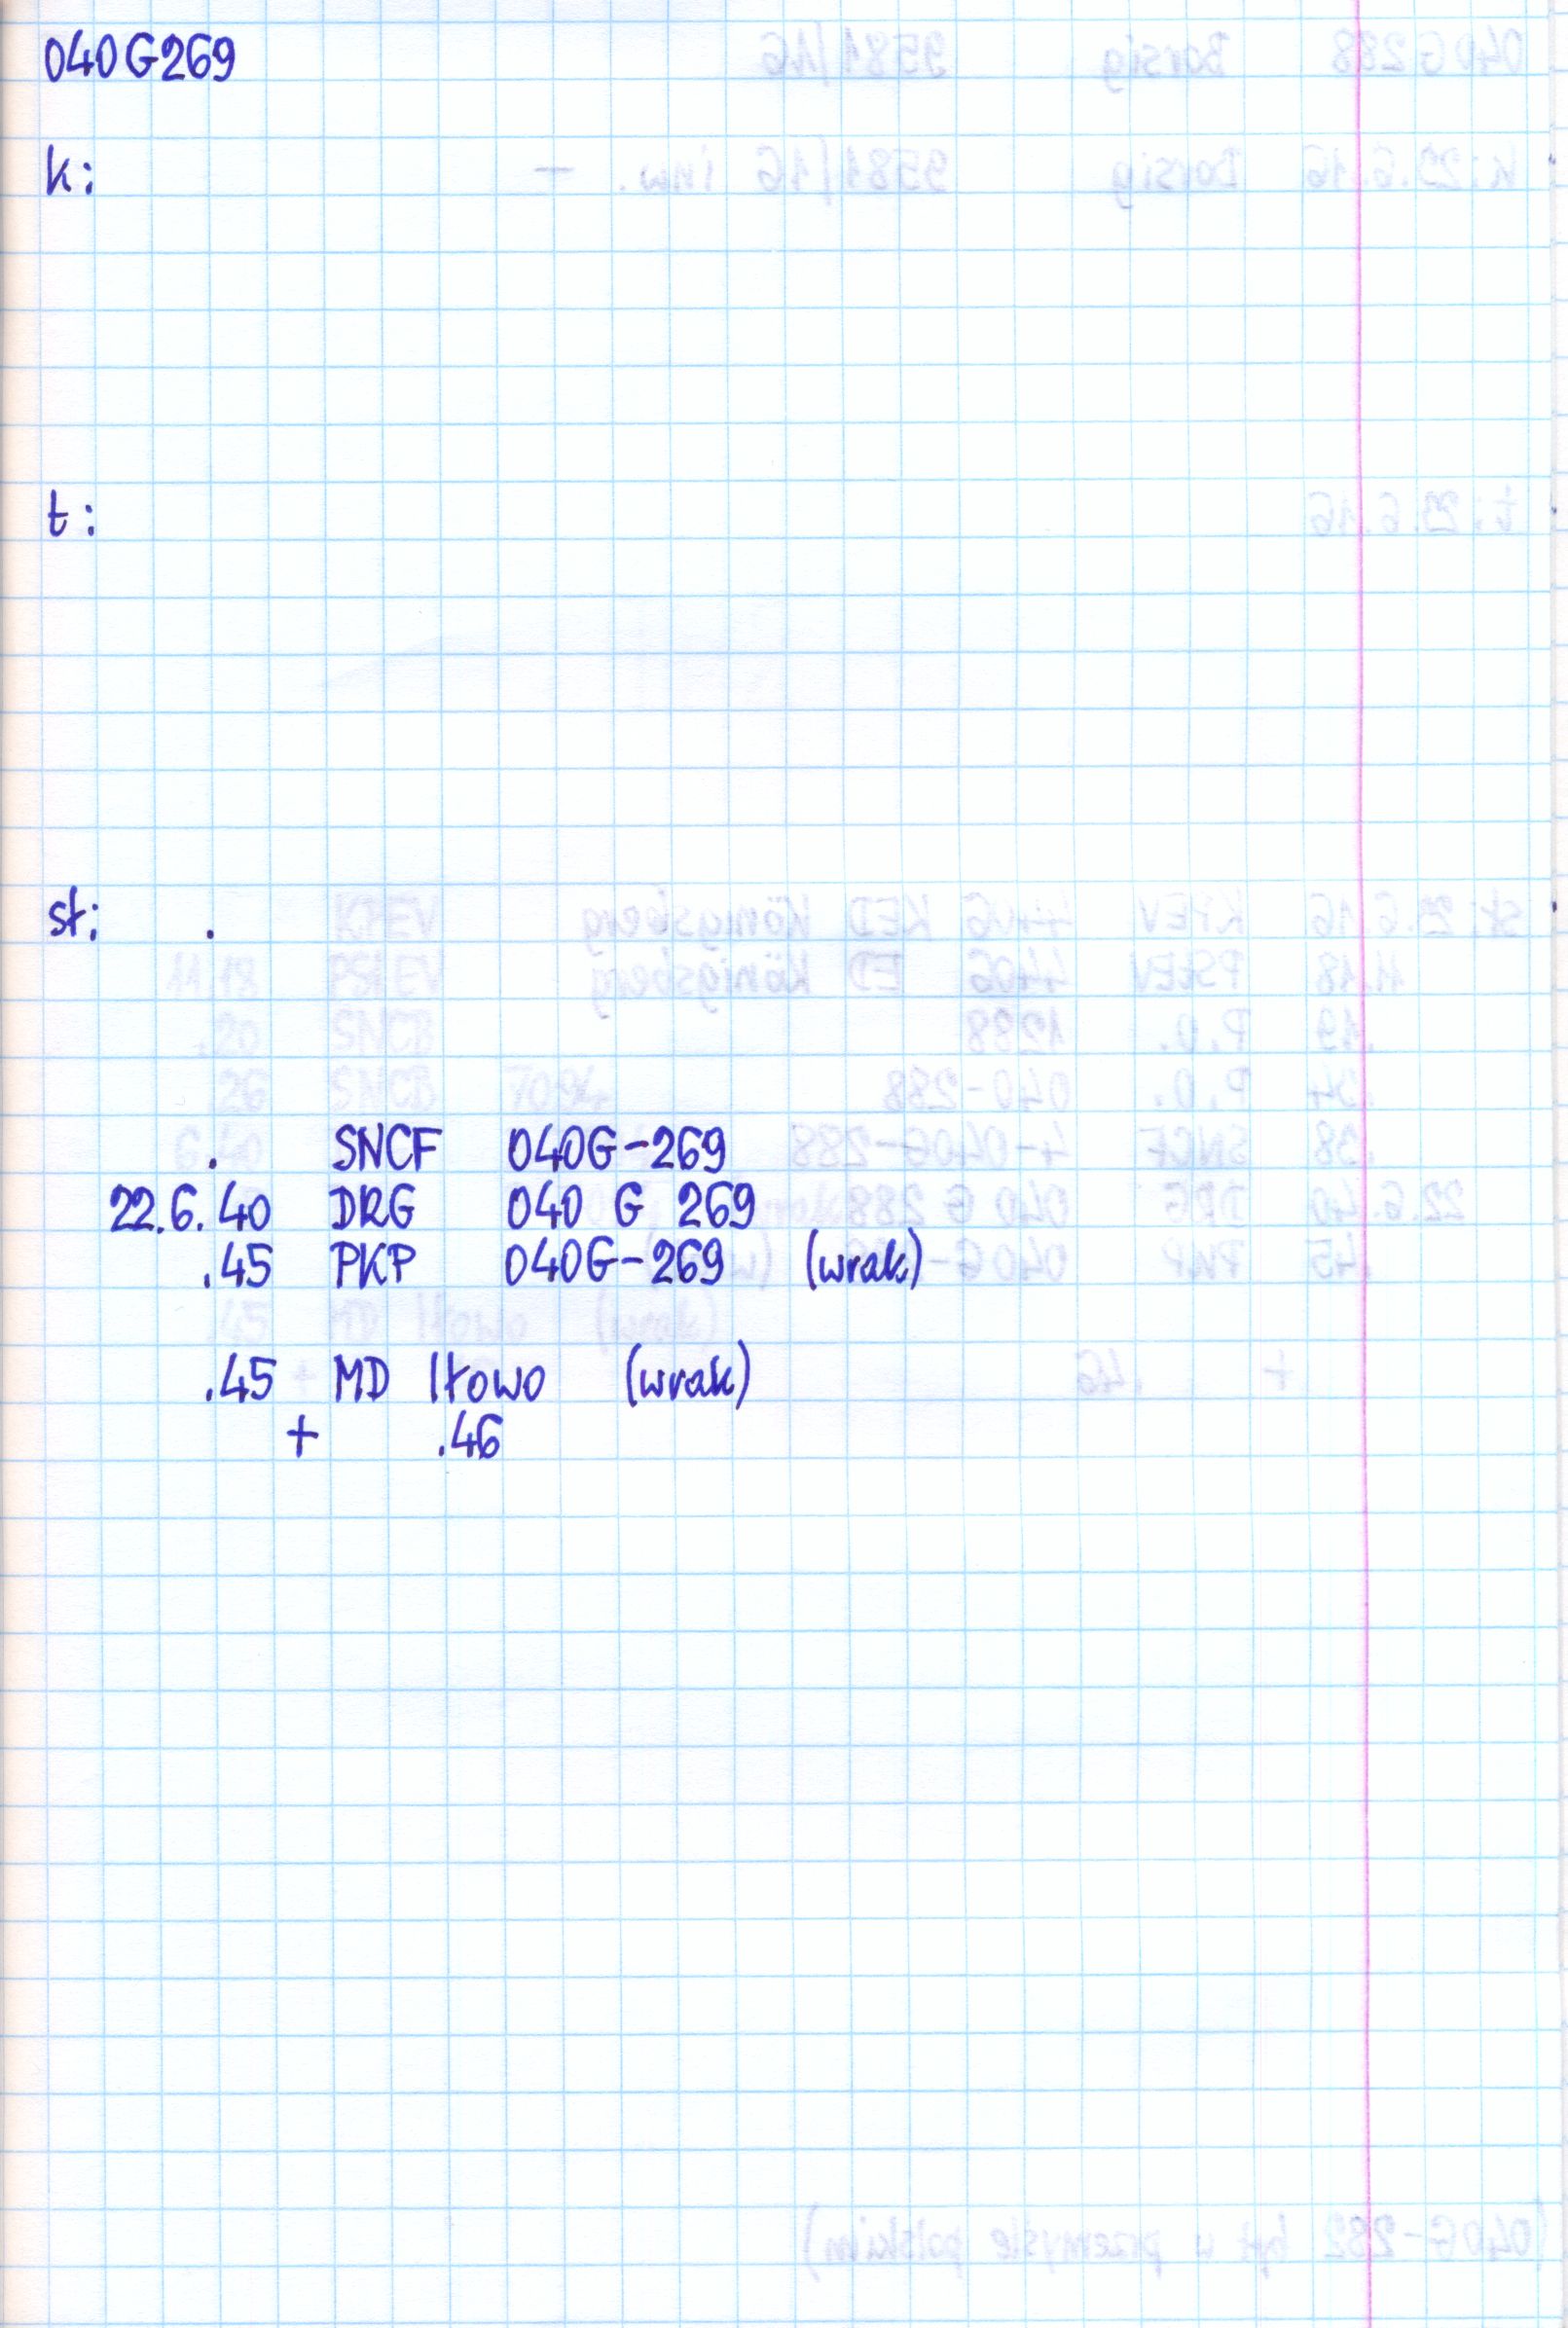 040G269
k:
t:
st: .
. SNCF 040G-269
22.6.40 DRG 040 G 269
.45 PKP 040G-269 (wrak)
.45 MD Iłowo (wrak)
+ .46